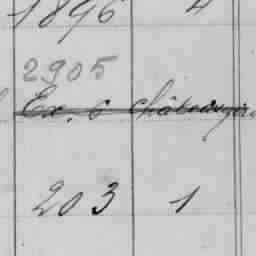 1896 4
2905
Ex. 6
203 1